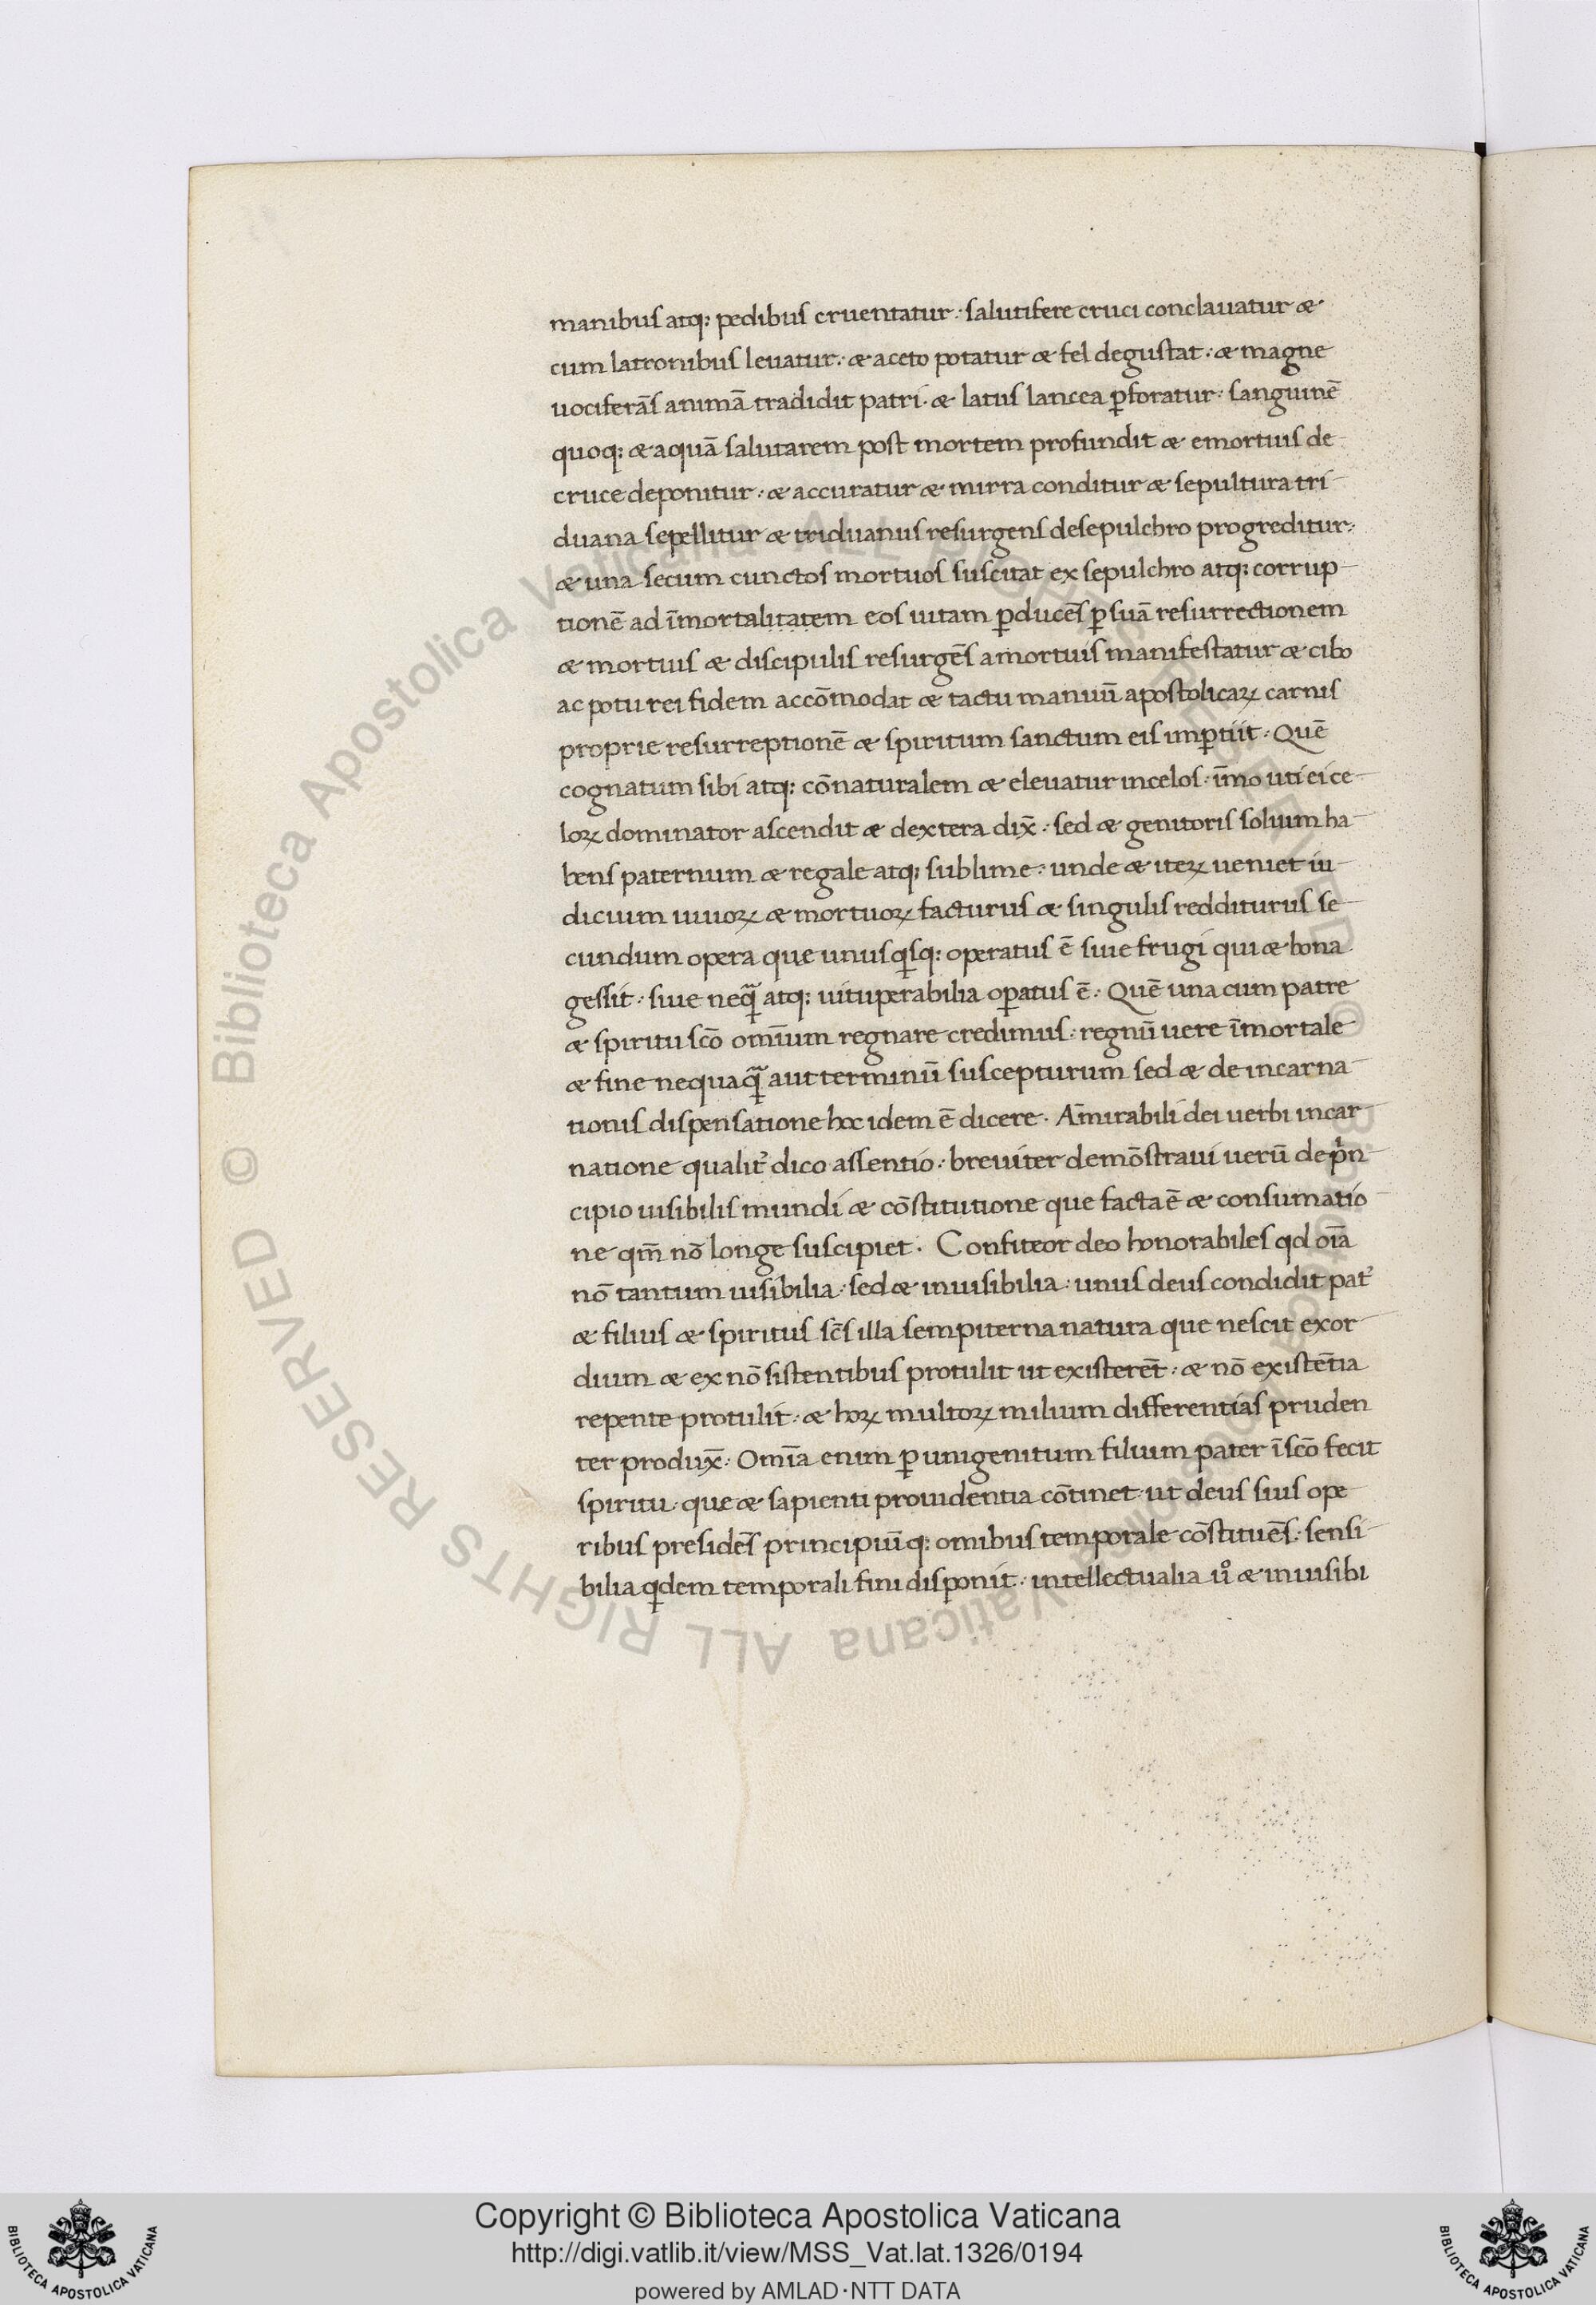 manibus atq; pedibus cruentatur. salutifere cruci conclauatur &
cum latronibus leuatur. & aceto potatur & fel degustat. & magne
uociferās animā tradidit patri. & latus lancea ꝑforatur. sanguinē
quoq; & aquā salutarem post mortem profundit & emortuis de
cruce deponitur. & accuratur & mirra conditur & sepultura tri
duana sepellitur & triduanus resurgens desepulchro progreditur.
& una secum cunctos mortuos suscitat ex sepulchro atq; corrup
tionē ad īmortalitatem eos uitam ꝑducēs ꝑ suā resurrectionem
& mortuis & discipulis resurgēs amortuis manifestatur & cibo
ac potu rei fidem accōmodat & tactu manuū apostolicaꝝ carnis
proprie resurreptionē & spiritum sanctum eis imꝑtiit. Quē
cognatum sibi atq; cōnaturalem & eleuatur incelos. īmo uti ei ce
loꝝ dominator ascendit & dextera dix̄. sed & genitoris solium ha
bens paternum & regale atq; sublime. unde & iteꝝ ueniet iu
dicium uiuoꝝ & mortuoꝝ facturus & singulis redditurus se
cundum opera que unusqsq; operatus ē siue frugi qui & bona
gessit. siue neqꝗ̄ atq; uituperabilia oꝑatus ē. Quē una cum patre
& spiritu scō omīum regnare credimus. regnū uere īmortale
& fine nequaꝗ̄ aut terminū suscepturum sed & de incarna
tionis dispensatione hoc idem ē dicere. Am̄irabili dei uerbi incar
natione qualit̉ dico assentio. breuiter demōstraui uerū de pn
cipio uisibilis mundi & cōstitutione que facta ē & consumatio
ne qm̄ nō longe suscipiet. Confiteor deo honorabiles qd oīa
nō tantum uisibilia. sed & inuisibilia. unus deus condidit pat̉
& filius & spiritus scs̄ illa sempiterna natura que nescit exor
dium & ex nō sistentibus protulit ut existerēt. & nō existētia
repente protulit. & hoꝝ multoꝝ milium differentias pruden
ter produx̄. Omīa enim ꝑ unigenitum filium pater ī scō fecit
spiritu. que & sapienti prouidentia cōtinet ut deus suis ope
ribus presidēs principiūq; omibus temporale cōstituēs. sensi
bilia qdem temporali fini disponit. intellectualia ů & inuisibi
Copyright © Biblioteca Apostolica Vaticana
http://digi.vatlib.it/view/MSS_Vat.lat.1326/0194
powered by AMLAD·NTT DATA
BIBLIOTECA APOSTOLICA VATICANA
BIBLIOTECA APOSTOLICA VATICANA
© Biblioteca Apostolica Vaticana ALL RIGHTS RESERVED © Biblioteca Apostolica Vaticana ALL RIGHTS RESERVED